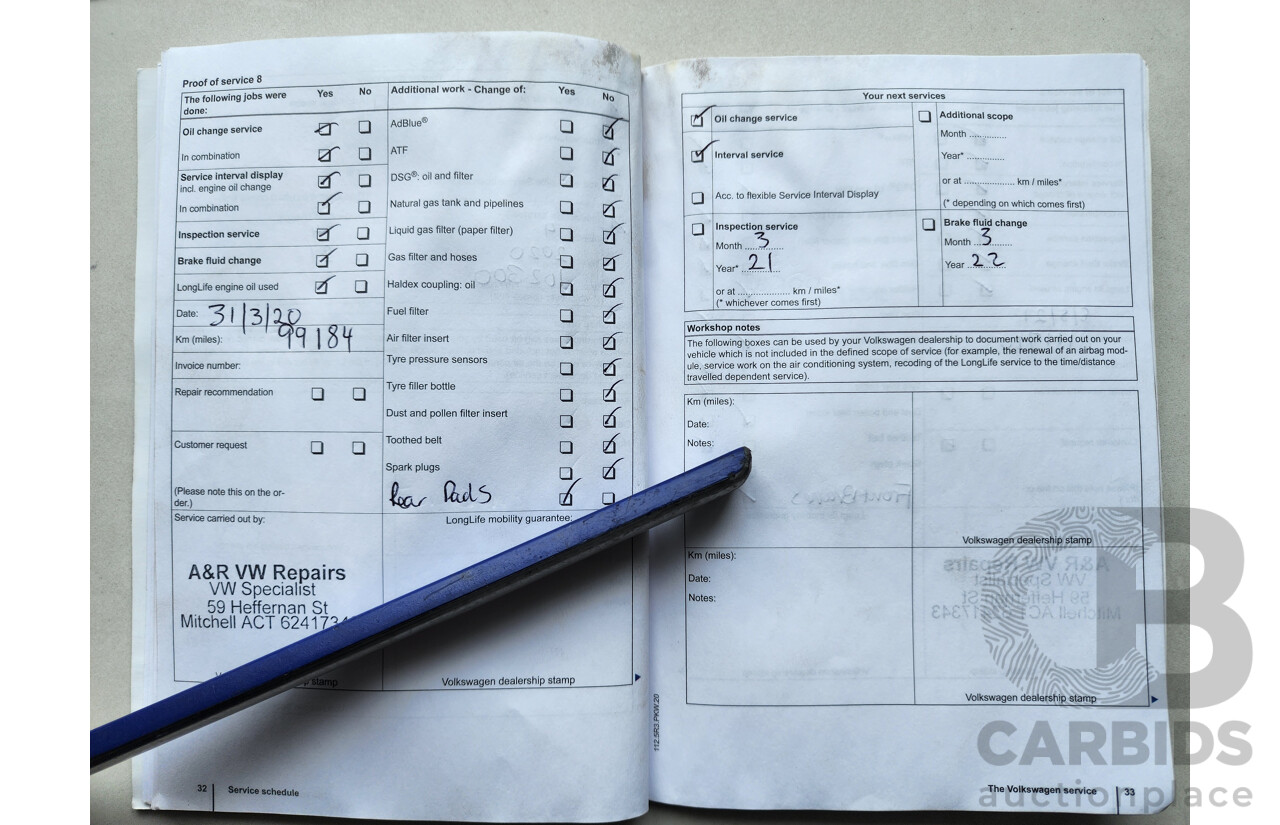 Proof of service 8
The following jobs were done: Yes No
Oil change service
In combination
Service interval display
incl. engine oil change
In combination
Inspection service
Brake fluid change
LongLife engine oil used
Date: 31/3/20
Km (miles): 99184
Invoice number:
Repair recommendation
Customer request
(Please note this on the or-
der.)
Service carried out by:
A&R VW Repairs
VW Specialist
59 Heffernan St
Mitchell ACT 6241734
stamp
Additional work - Change of: Yes No
AdBlue®
ATF
DSG®: oil and filter
Natural gas tank and pipelines
Liquid gas filter (paper filter)
Gas filter and hoses
Haldex coupling: oil
Fuel filter
Air filter insert
Tyre pressure sensors
Tyre filler bottle
Dust and pollen filter insert
Toothed belt
Spark plugs
Rear Pads
LongLife mobility guarantee:
Volkswagen dealership stamp
32 Service schedule
Your next services
Oil change service
Interval service
Acc. to flexible Service Interval Display
Inspection service
Month ....3........
Year* ..21........
or at .................. km / miles*
(* whichever comes first)
Additional scope
Month .............
Year* .............
or at .................. km / miles*
(* depending on which comes first)
Brake fluid change
Month ...3........
Year ..22........
Workshop notes
The following boxes can be used by your Volkswagen dealership to document work carried out on your
vehicle which is not included in the defined scope of service (for example, the renewal of an airbag mod-
ule, service work on the air conditioning system, recoding of the LongLife service to the time/distance
travelled dependent service).
Km (miles):
Date:
Notes:
Volkswagen dealership stamp
Km (miles):
Date:
Notes:
Volkswagen dealership stamp
112.5R3.PKW.20
The Volkswagen service 33
CB
CARBIDS
auctionplace